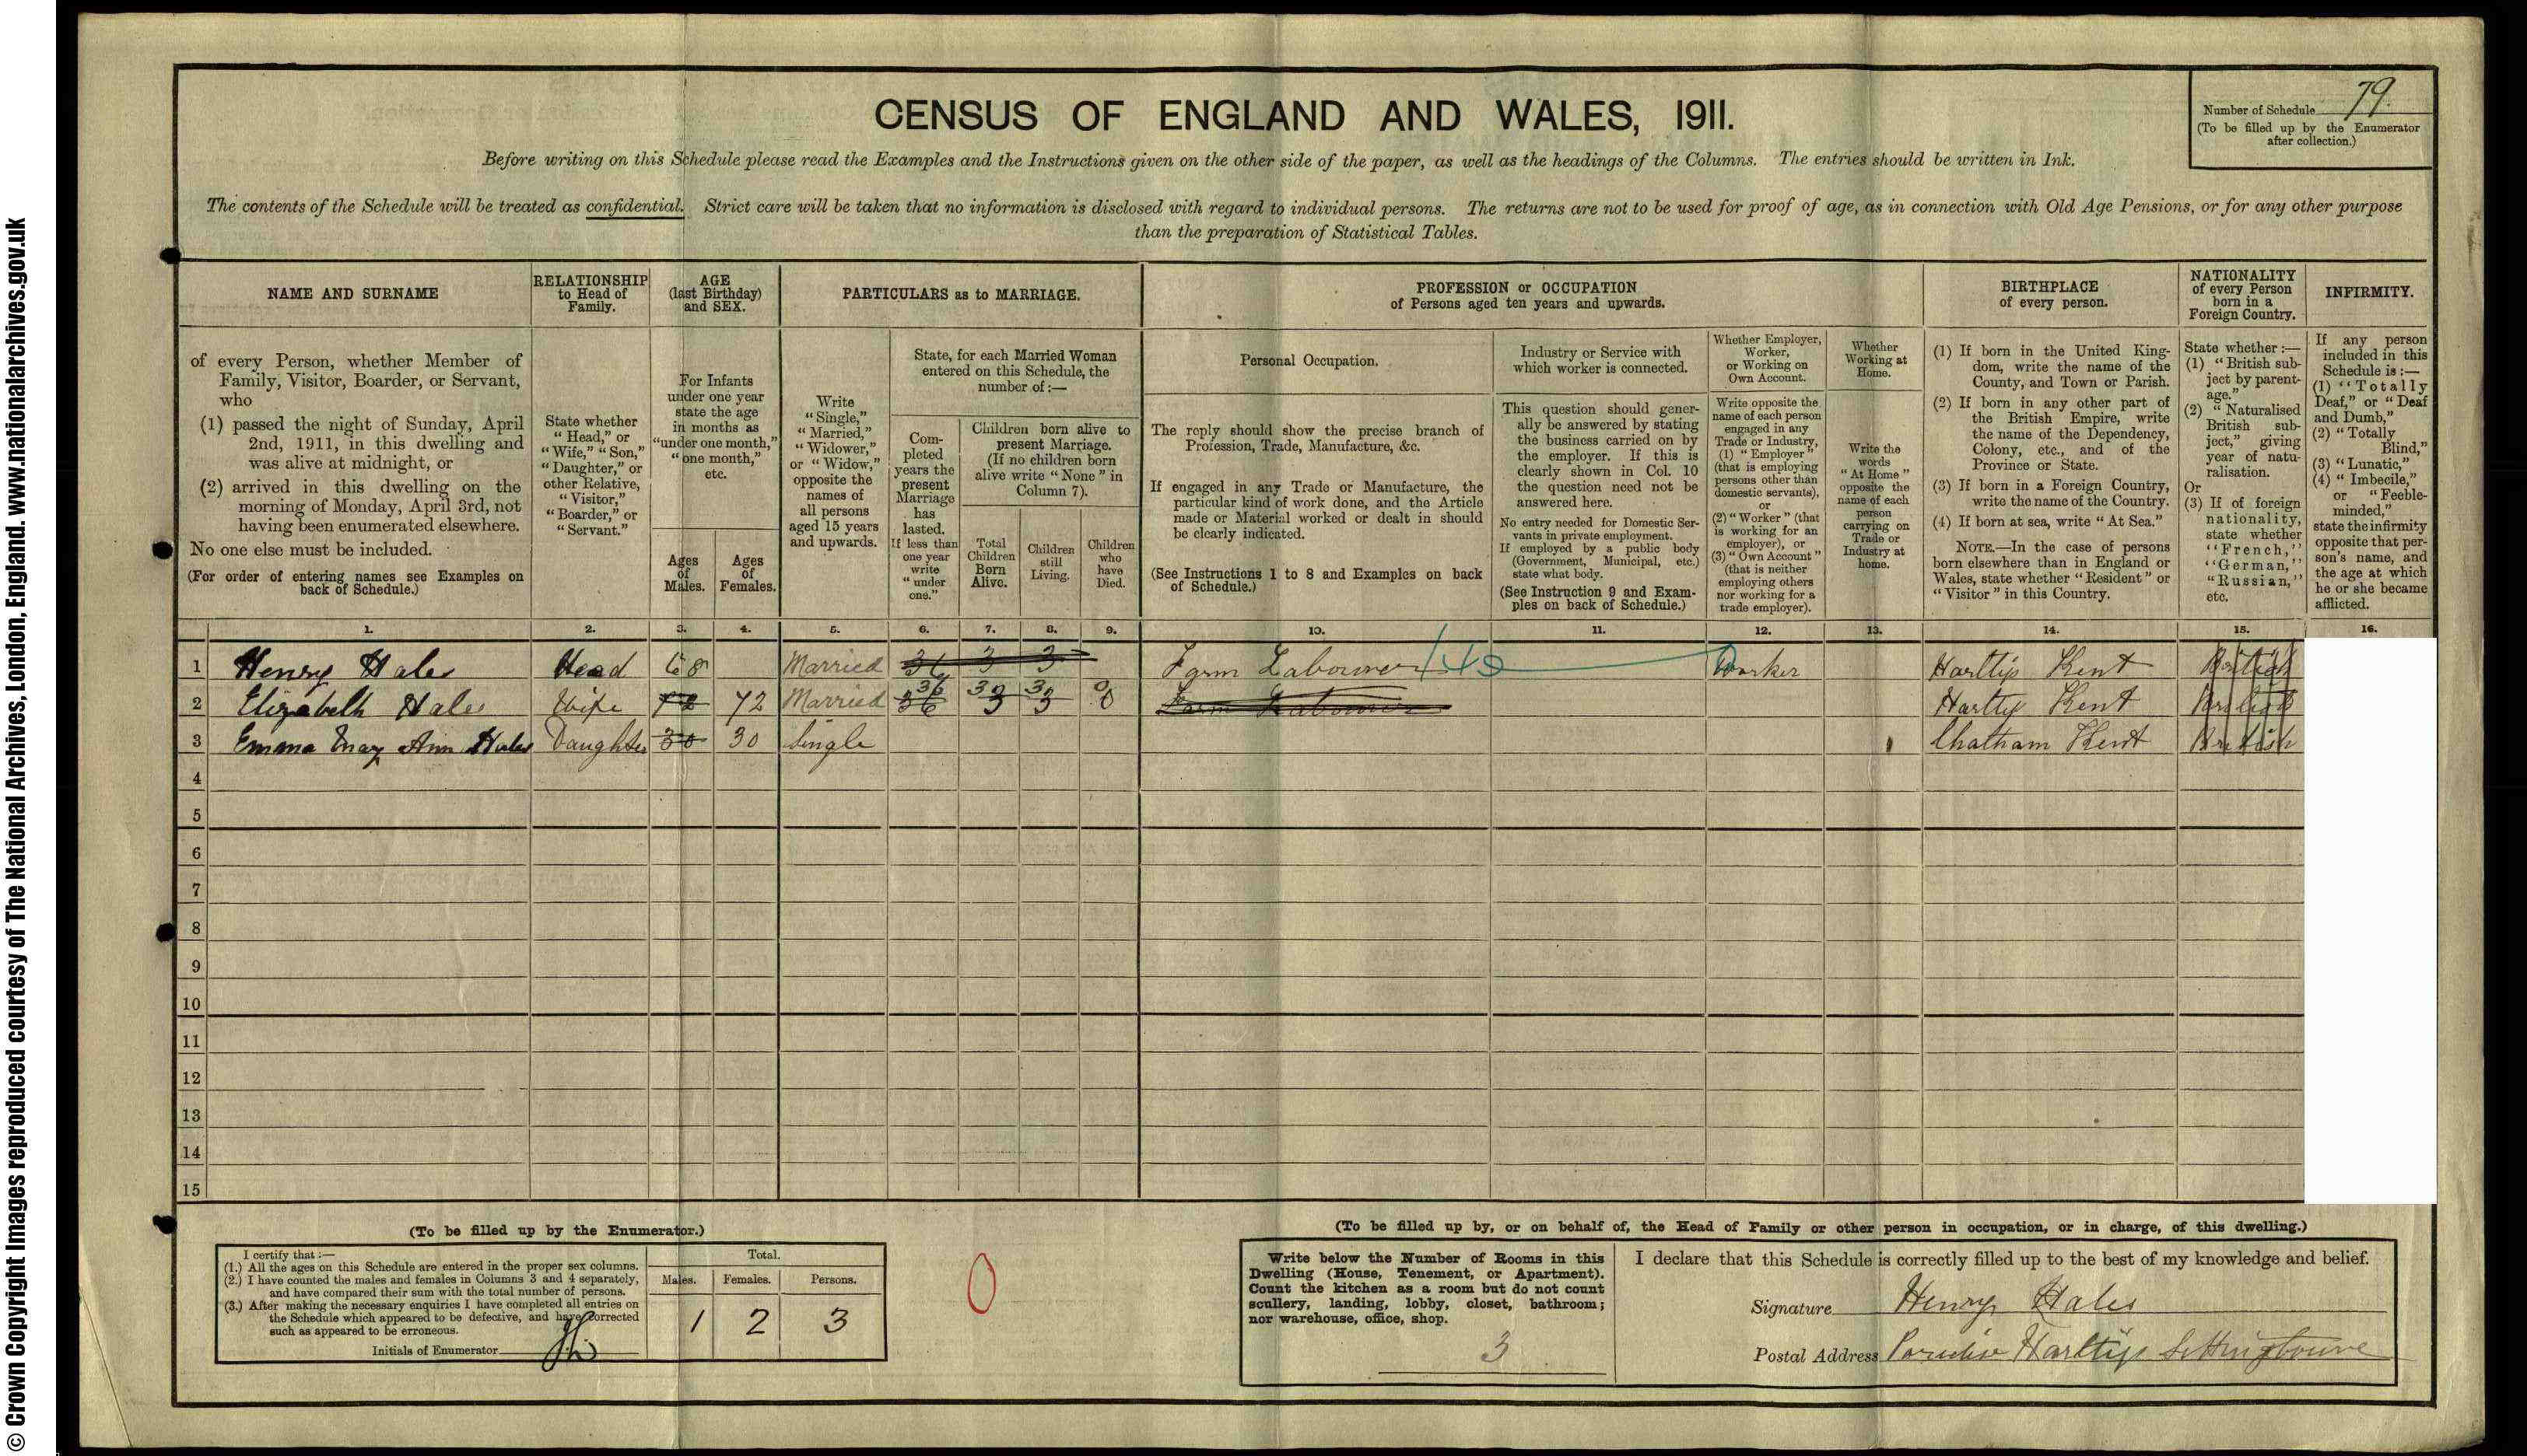 © Crown Copyright Images reproduced courtesy of The National Archives, London, England. www.nationalarchives.gov.uk
CENSUS OF ENGLAND AND WALES, 1911.
Number of Schedule 79.
(To be filled up by the Enumerator
after collection.)
Before writing on this Schedule please read the Examples and the Instructions given on the other side of the paper, as well as the headings of the Columns. The entries should be written in Ink.
The contents of the Schedule will be treated as confidential. Strict care will be taken that no information is disclosed with regard to individual persons. The returns are not to be used for proof of age, as in connection with Old Age Pensions, or for any other purpose
than the preparation of Statistical Tables.
NAME AND SURNAME
of every Person, whether Member of
Family, Visitor, Boarder, or Servant,
who
(1) passed the night of Sunday, April
2nd, 1911, in this dwelling and
was alive at midnight, or
(2) arrived in this dwelling on the
morning of Monday, April 3rd, not
having been enumerated elsewhere.
No one else must be included.
(For order of entering names see Examples on
back of Schedule.)
RELATIONSHIP
to Head of
Family.
State whether
"Head," or
"Wife," "Son,"
"Daughter," or
other Relative,
"Visitor,"
"Boarder," or
"Servant."
AGE
(last Birthday)
and SEX.
For Infants
under one year
state the age
in months as
"under one month,"
"one month,"
etc.
Ages
of
Males.
Ages
of
Females.
PARTICULARS as to MARRIAGE.
Write
"Single,"
"Married,"
"Widower,"
or "Widow,"
opposite the
names of
all persons
aged 15 years
and upwards.
State, for each Married Woman
entered on this Schedule, the
number of:—
Com-
pleted
years the
present
Marriage
has
lasted.
If less than
one year
write
"under
one."
Children born alive to
present Marriage.
(If no children born
alive write "None" in
Column 7).
Total
Children
Born
Alive.
Children
still
Living.
Children
who
have
Died.
PROFESSION or OCCUPATION
of Persons aged ten years and upwards.
Personal Occupation.
The reply should show the precise branch of
Profession, Trade, Manufacture, &c.
If engaged in any Trade or Manufacture, the
particular kind of work done, and the Article
made or Material worked or dealt in should
be clearly indicated.
(See Instructions 1 to 8 and Examples on back
of Schedule.)
Industry or Service with
which worker is connected.
This question should gener-
ally be answered by stating
the business carried on by
the employer. If this is
clearly shown in Col. 10
the question need not be
answered here.
No entry needed for Domestic Ser-
vants in private employment.
If employed by a public body
(Government, Municipal, etc.)
state what body.
(See Instruction 9 and Exam-
ples on back of Schedule.)
Whether Employer,
Worker,
or Working on
Own Account.
Write opposite the
name of each person
engaged in any
Trade or Industry,
(1) "Employer"
(that is employing
persons other than
domestic servants),
or
(2) "Worker" (that
is working for an
employer), or
(3) "Own Account"
(that is neither
employing others
nor working for a
trade employer).
Whether
Working at
Home.
Write the
words
"At Home"
opposite the
name of each
person
carrying on
Trade or
Industry at
home.
BIRTHPLACE
of every person.
(1) If born in the United King-
dom, write the name of the
County, and Town or Parish.
(2) If born in any other part of
the British Empire, write
the name of the Dependency,
Colony, etc., and of the
Province or State.
(3) If born in a Foreign Country,
write the name of the Country.
(4) If born at sea, write "At Sea."
NOTE.—In the case of persons
born elsewhere than in England or
Wales, state whether "Resident" or
"Visitor" in this Country.
NATIONALITY
of every Person
born in a
Foreign Country.
State whether:—
(1) "British sub-
ject by parent-
age."
(2) "Naturalised
British sub-
ject," giving
year of natu-
ralisation.
Or
(3) If of foreign
nationality,
state whether
"French,"
"German,"
"Russian,"
etc.
INFIRMITY.
If any person
included in this
Schedule is:—
(1) "Totally
Deaf," or "Deaf
and Dumb,"
(2) "Totally
Blind,"
(3) "Lunatic,"
(4) "Imbecile,"
or "Feeble-
minded,"
state the infirmity
opposite that per-
son's name, and
the age at which
he or she became
afflicted.
1. 2. 3. 4. 5. 6. 7. 8. 9. 10. 11. 12. 13. 14. 15. 16.
1 Henry Hales Head 68 Married 36 3 3 Farm Labourer Worker Hartlip Kent British
2 Elizabeth Hales Wife 72 72 Married 36 36 3 3 3 3 0 0 Farm Labourer Hartlip Kent British
3 Emma May Ann Hales Daughter 30 30 Single Chatham Kent British
4
5
6
7
8
9
10
11
12
13
14
15
(To be filled up by the Enumerator.)
I certify that:—
(1.) All the ages on this Schedule are entered in the proper sex columns.
(2.) I have counted the males and females in Columns 3 and 4 separately,
and have compared their sum with the total number of persons.
(3.) After making the necessary enquiries I have completed all entries on
the Schedule which appeared to be defective, and have corrected
such as appeared to be erroneous.
Initials of Enumerator
Total.
Males. Females. Persons.
1 2 3
0
(To be filled up by, or on behalf of, the Head of Family or other person in occupation, or in charge, of this dwelling.)
Write below the Number of Rooms in this
Dwelling (House, Tenement, or Apartment).
Count the kitchen as a room but do not count
scullery, landing, lobby, closet, bathroom;
nor warehouse, office, shop.
3
I declare that this Schedule is correctly filled up to the best of my knowledge and belief.
Signature Henry Hales
Postal Address Paradise Hartlip Sittingbourne